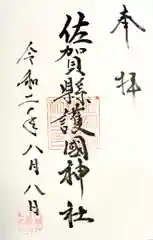 奉拝
佐賀縣護國神社
令和二年八月八月